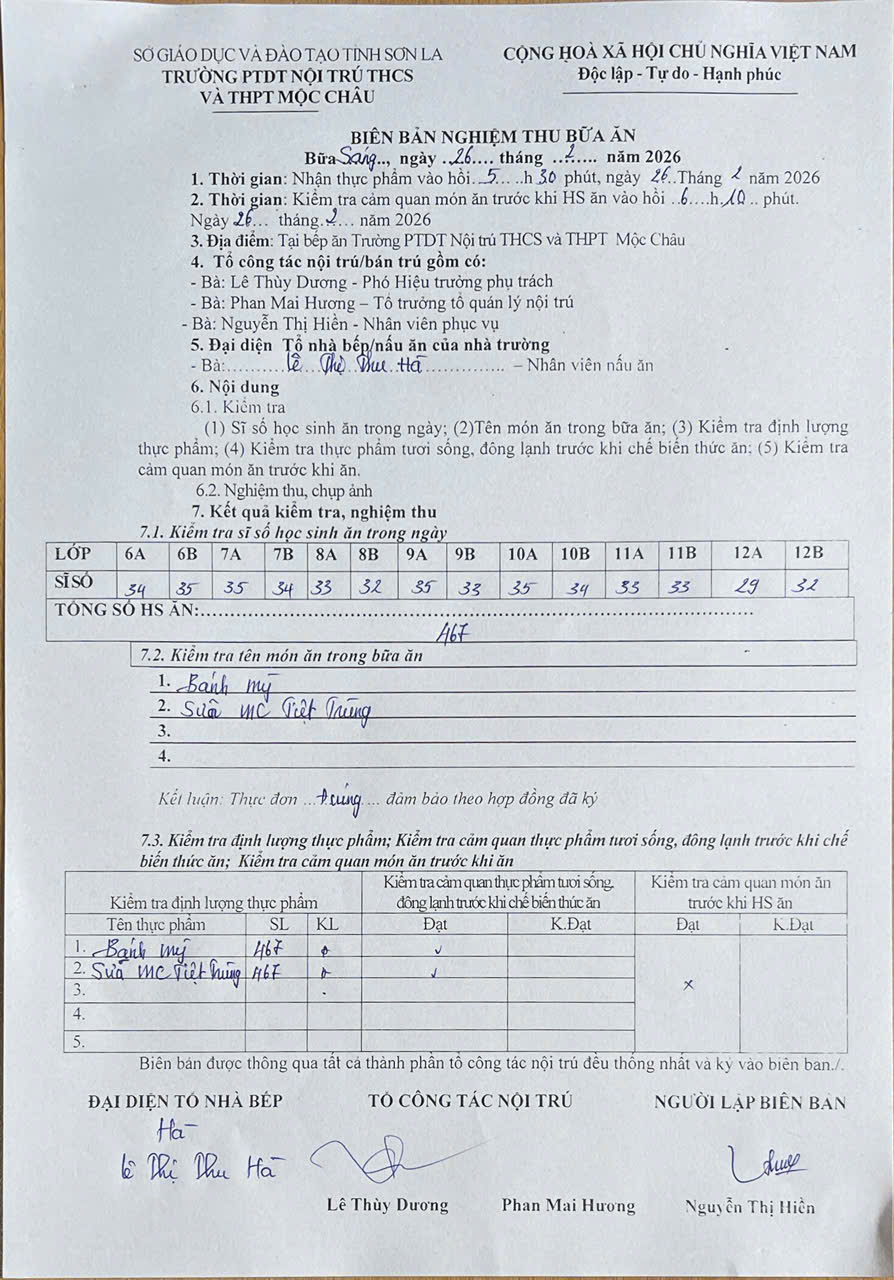 SỞ GIÁO DỤC VÀ ĐÀO TẠO TỈNH SƠN LA
TRƯỜNG PTDT NỘI TRÚ THCS
VÀ THPT MỘC CHÂU
CỘNG HOÀ XÃ HỘI CHỦ NGHĨA VIỆT NAM
Độc lập - Tự do - Hạnh phúc
BIÊN BẢN NGHIỆM THU BỮA ĂN
Bữa Sáng.., ngày ..26.... tháng ..2.... năm 2026
1. Thời gian: Nhận thực phẩm vào hồi..5.....h 30 phút, ngày 26..Tháng 2 năm 2026
2. Thời gian: Kiểm tra cảm quan món ăn trước khi HS ăn vào hồi ..6....h.10.. phút.
Ngày 26... tháng.2... năm 2026
3. Địa điểm: Tại bếp ăn Trường PTDT Nội trú THCS và THPT Mộc Châu
4. Tổ công tác nội trú/bán trú gồm có:
- Bà: Lê Thùy Dương - Phó Hiệu trưởng phụ trách
- Bà: Phan Mai Hương – Tổ trưởng tổ quản lý nội trú
- Bà: Nguyễn Thị Hiền - Nhân viên phục vụ
5. Đại diện Tổ nhà bếp/nấu ăn của nhà trường
- Bà:..........Lê...Thị..Thu Hà.............. – Nhân viên nấu ăn
6. Nội dung
6.1. Kiểm tra
(1) Sĩ số học sinh ăn trong ngày; (2)Tên món ăn trong bữa ăn; (3) Kiểm tra định lượng
thực phẩm; (4) Kiểm tra thực phẩm tươi sống, đông lạnh trước khi chế biến thức ăn; (5) Kiểm tra
cảm quan món ăn trước khi ăn.
6.2. Nghiệm thu, chụp ảnh
7. Kết quả kiểm tra, nghiệm thu
7.1. Kiểm tra sĩ số học sinh ăn trong ngày
LỚP 6A 6B 7A 7B 8A 8B 9A 9B 10A 10B 11A 11B 12A 12B
SĨ SỐ 34 35 35 34 33 32 35 33 35 34 33 33 29 32
TỔNG SỐ HS ĂN:..........................................................................
467
7.2. Kiểm tra tên món ăn trong bữa ăn
1. Bánh mỳ
2. Sữa MC Tiệt Trùng
3.
4.
Kết luận: Thực đơn ...đúng.... đảm bảo theo hợp đồng đã ký
7.3. Kiểm tra định lượng thực phẩm; Kiểm tra cảm quan thực phẩm tươi sống, đông lạnh trước khi chế
biến thức ăn; Kiểm tra cảm quan món ăn trước khi ăn
Kiểm tra định lượng thực phẩm
Kiểm tra cảm quan thực phẩm tươi sống,
đông lạnh trước khi chế biến thức ăn
Kiểm tra cảm quan món ăn
trước khi HS ăn
Tên thực phẩm SL KL Đạt K.Đạt Đạt K.Đạt
1. Bánh mỳ 467 ✓
2. Sữa MC Tiệt Trùng 467 ✓
x
3.
4.
5.
Biên bản được thông qua tất cả thành phần tổ công tác nội trú đều thống nhất và ký vào biên bản./.
ĐẠI DIỆN TỔ NHÀ BẾP TỔ CÔNG TÁC NỘI TRÚ NGƯỜI LẬP BIÊN BẢN
Hà
Lê Thị Thu Hà
Lê Thùy Dương Phan Mai Hương Nguyễn Thị Hiền